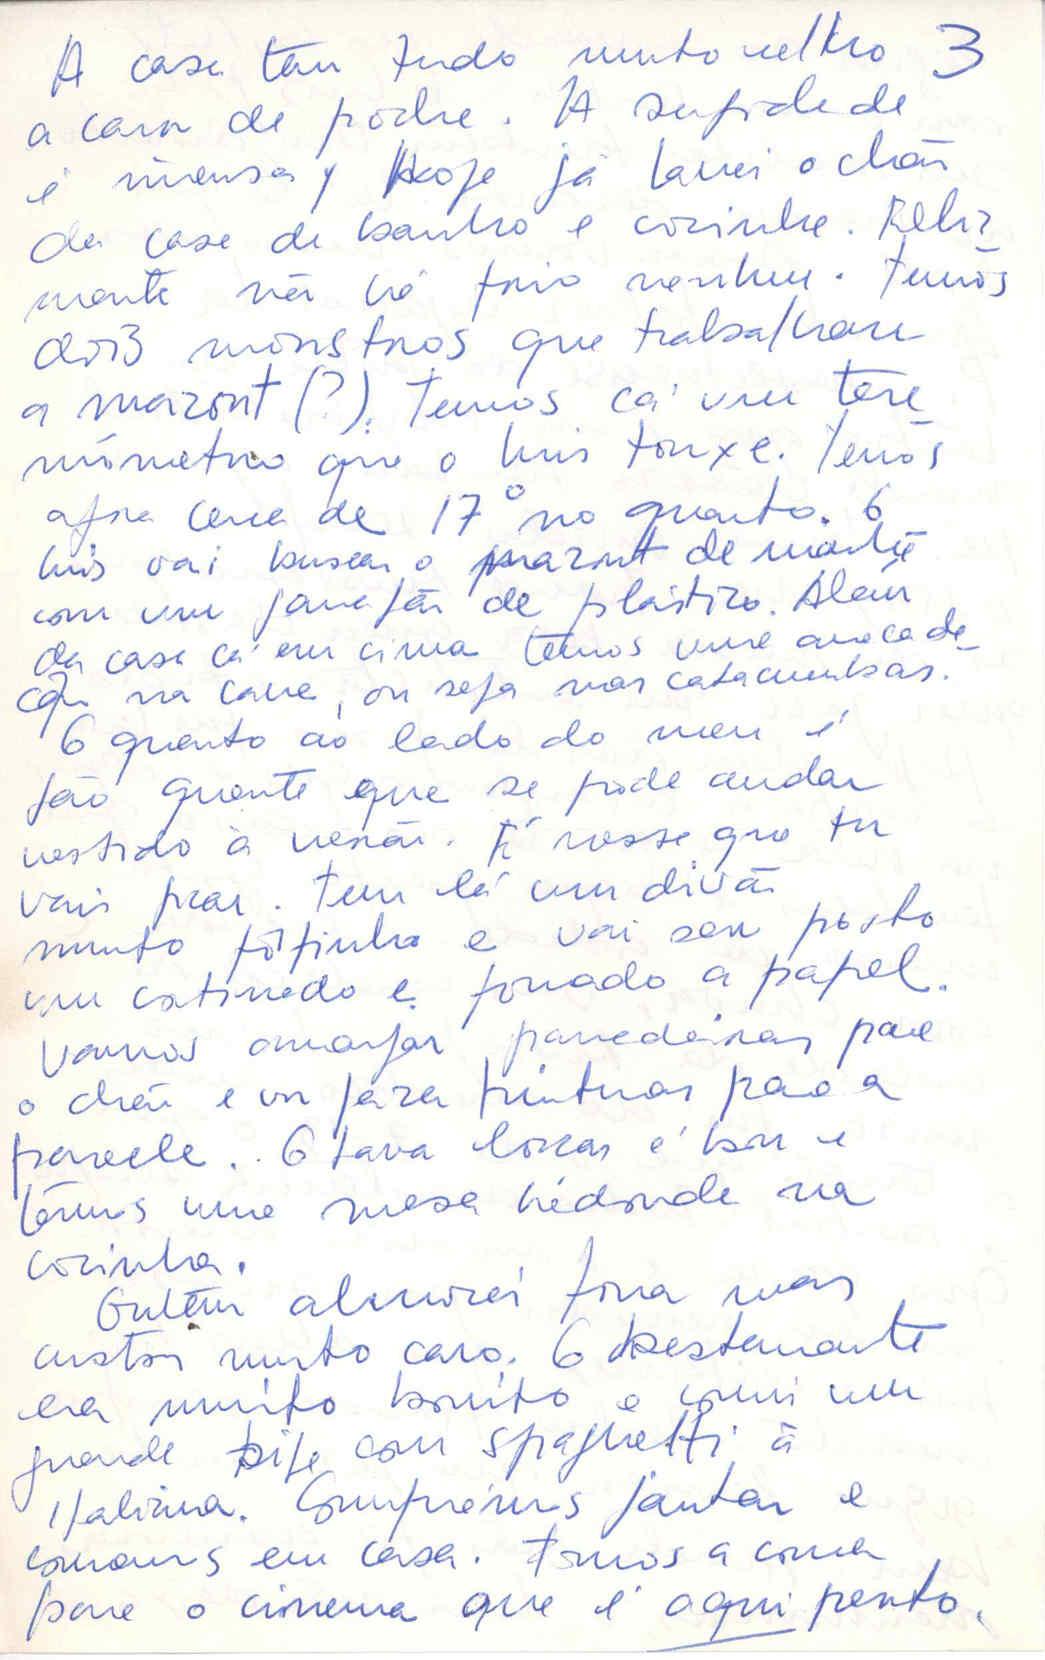 A casa tem tudo muito velho 3
a cair de podre. A sujidade
é imensa y hoje já lavei o chão
da casa de banho e cozinha. Feliz-
mente não há frio nenhum. Temos
dois monstros que trabalham
a mazout (?). Temos cá um term-
ómetro que o Luis trouxe. Temos
agora cerca de 17° no quarto. O
Luis vai buscar o mazout de manhã
com um jarrafão de plástico. Além
da casa cá em cima temos uma arrecada-
ção na cave, ou seja nas catacumbas.
O quarto ao lado do meu é
tão quente que se pode andar
vestido à verão. É nesse que tu
vais ficar. Tem lá um divã
muito fofinho e vai ser posto
um cortinado e forrado a papel.
Vamos arranjar para
o chão e vou fazer pinturas para a
parede. O lava loiças é bom e
temos uma mesa redonda na
cozinha.
Ontem almocei fora mas
custou muito caro. O Restaurante
era muito bonito e comi um
grande bife com spaghetti à
Italiana. Comprámos jantar e
comemos em casa. Fomos a
para o cinema que é aqui perto.